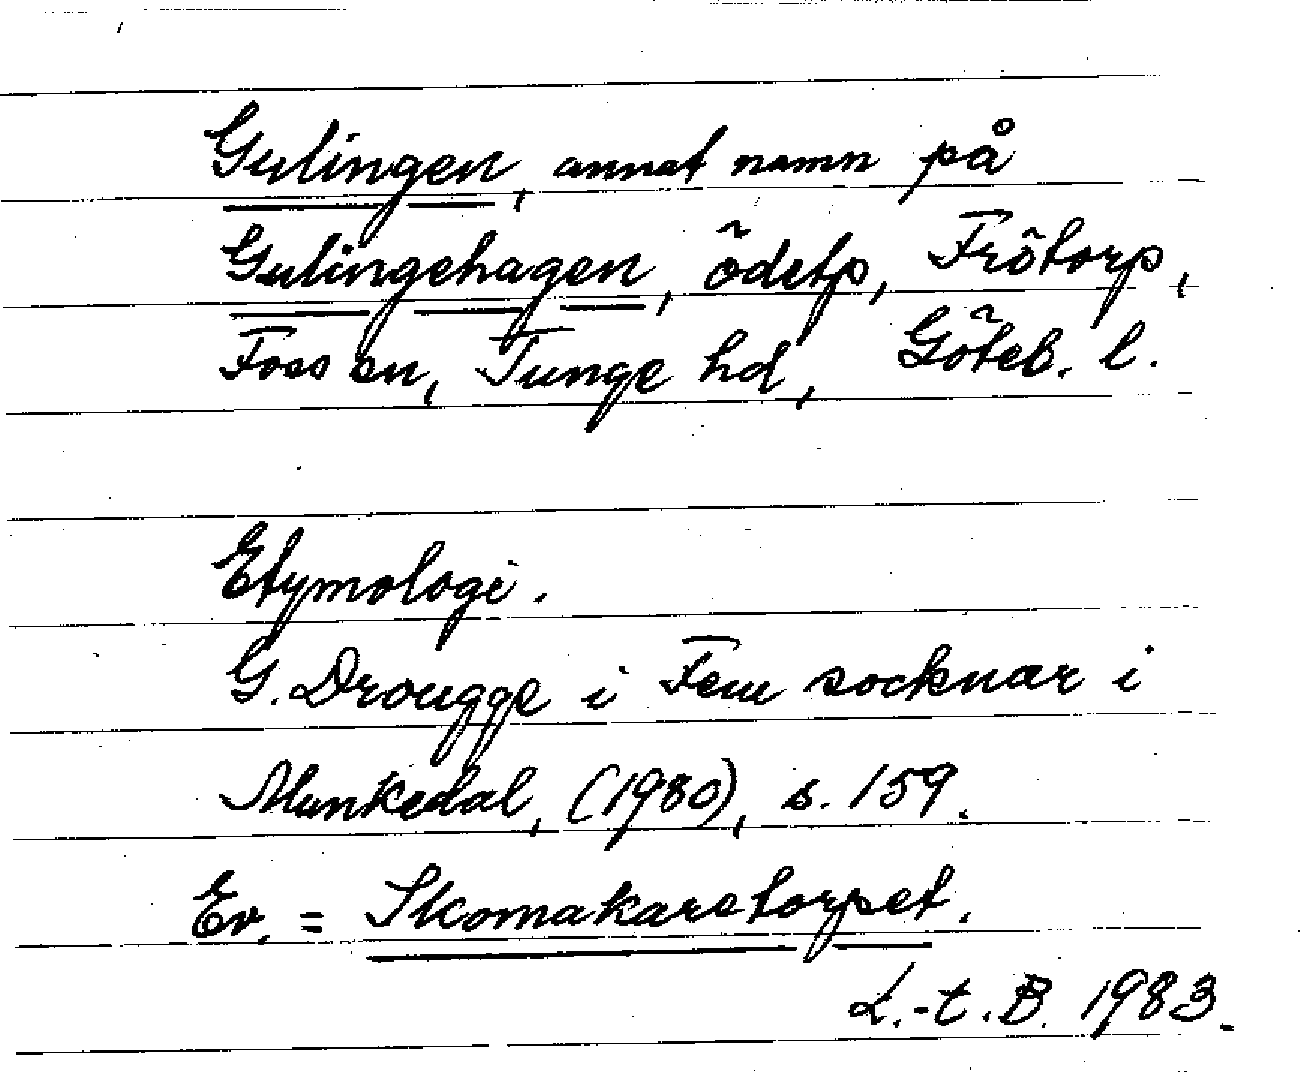 Gulingen, annat namn på
Gulingehagen, ödetp, Frötorp,
Foss sn, Tunge hd, Göteb. l.
Etymologi.
G. Drougge i Fem socknar i
Munkedal, (1980), s. 159.
Ev. = Skomakaretorpet.
L.-t. B. 1983.